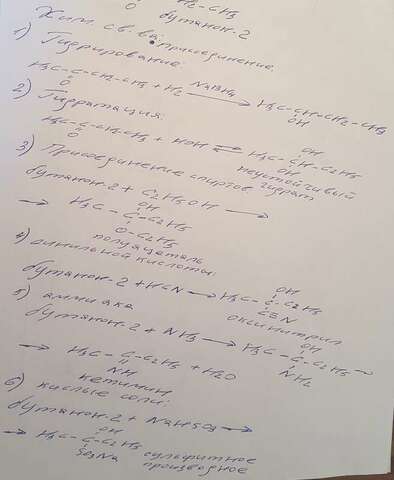 O бутанон-2
Хим. св-ва: присоединение
1) Гидрирование:
H3C-C-CH2-CH3 + H2 NaBH4→ H3C-CH-CH2-CH3
O OH
2) Гидратация:
H3C-C-CH2CH3 + HOH ⇌ H3C-C-C2H5
O OH OH
неустойчивый
гидрат
3) Присоединение спиртов
бутанон-2 + C2H5OH →
OH
→ H3C-C-C2H5
O-C2H5
полуацеталь
4) синильной кислоты:
OH
бутанон-2 + HCN → H3C-C-C2H5
C≡N
оксинитрил
5) аммиака
OH
бутанон-2 + NH3 → H3C-C-C2H5 →
NH2
→ H3C-C-C2H5 + H2O
NH
кетимин
6) кислые соли:
бутанон-2 + NaHSO3 →
OH
→ H3C-C-C2H5 сульфитное
SO3Na производное